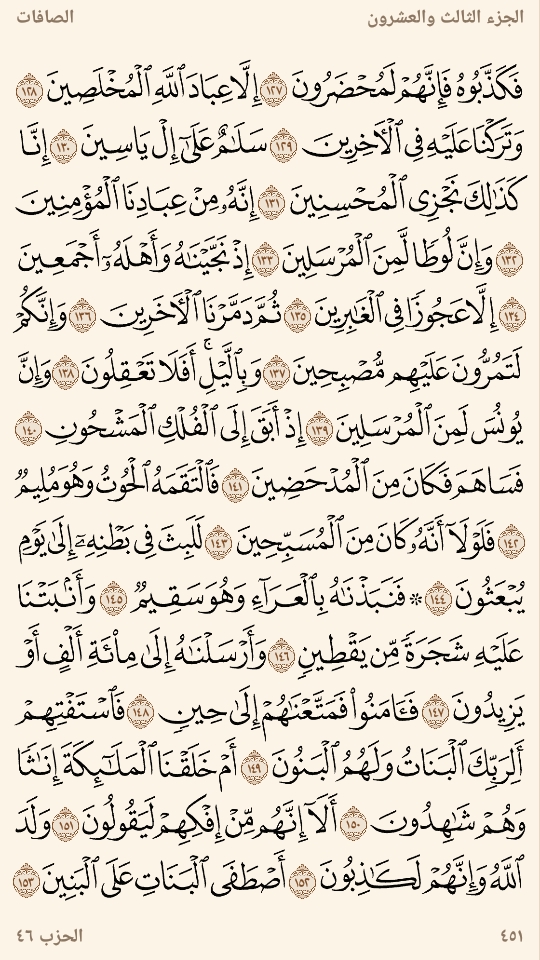 الجزء الثالث والعشرون
الصافات
فَكَذَّبُوهُ فَإِنَّهُمْ لَمُحْضَرُونَ ١٢٧ إِلَّا عِبَادَ ٱللَّهِ ٱلْمُخْلَصِينَ ١٢٨
وَتَرَكْنَا عَلَيْهِ فِى ٱلْـَٔاخِرِينَ ١٢٩ سَلَـٰمٌ عَلَىٰٓ إِلْ يَاسِينَ ١٣٠ إِنَّا
كَذَٰلِكَ نَجْزِى ٱلْمُحْسِنِينَ ١٣١ إِنَّهُۥ مِنْ عِبَادِنَا ٱلْمُؤْمِنِينَ
١٣٢ وَإِنَّ لُوطًا لَّمِنَ ٱلْمُرْسَلِينَ ١٣٣ إِذْ نَجَّيْنَـٰهُ وَأَهْلَهُۥٓ أَجْمَعِينَ
١٣٤ إِلَّا عَجُوزًا فِى ٱلْغَـٰبِرِينَ ١٣٥ ثُمَّ دَمَّرْنَا ٱلْـَٔاخَرِينَ ١٣٦ وَإِنَّكُمْ
لَتَمُرُّونَ عَلَيْهِم مُّصْبِحِينَ ١٣٧ وَبِٱلَّيْلِ ۗ أَفَلَا تَعْقِلُونَ ١٣٨ وَإِنَّ
يُونُسَ لَمِنَ ٱلْمُرْسَلِينَ ١٣٩ إِذْ أَبَقَ إِلَى ٱلْفُلْكِ ٱلْمَشْحُونِ ١٤٠
فَسَاهَمَ فَكَانَ مِنَ ٱلْمُدْحَضِينَ ١٤١ فَٱلْتَقَمَهُ ٱلْحُوتُ وَهُوَ مُلِيمٌ
١٤٢ فَلَوْلَآ أَنَّهُۥ كَانَ مِنَ ٱلْمُسَبِّحِينَ ١٤٣ لَلَبِثَ فِى بَطْنِهِۦٓ إِلَىٰ يَوْمِ
يُبْعَثُونَ ١٤٤ ۞ فَنَبَذْنَـٰهُ بِٱلْعَرَآءِ وَهُوَ سَقِيمٌ ١٤٥ وَأَنۢبَتْنَا
عَلَيْهِ شَجَرَةً مِّن يَقْطِينٍ ١٤٦ وَأَرْسَلْنَـٰهُ إِلَىٰ مِا۟ئَةِ أَلْفٍ أَوْ
يَزِيدُونَ ١٤٧ فَـَٔامَنُوا۟ فَمَتَّعْنَـٰهُمْ إِلَىٰ حِينٍ ١٤٨ فَٱسْتَفْتِهِمْ
أَلِرَبِّكَ ٱلْبَنَاتُ وَلَهُمُ ٱلْبَنُونَ ١٤٩ أَمْ خَلَقْنَا ٱلْمَلَـٰٓئِكَةَ إِنَـٰثًا
وَهُمْ شَـٰهِدُونَ ١٥٠ أَلَآ إِنَّهُم مِّنْ إِفْكِهِمْ لَيَقُولُونَ ١٥١ وَلَدَ
ٱللَّهُ وَإِنَّهُمْ لَكَـٰذِبُونَ ١٥٢ أَصْطَفَى ٱلْبَنَاتِ عَلَى ٱلْبَنِينَ ١٥٣
٤٥١
الحزب ٤٦